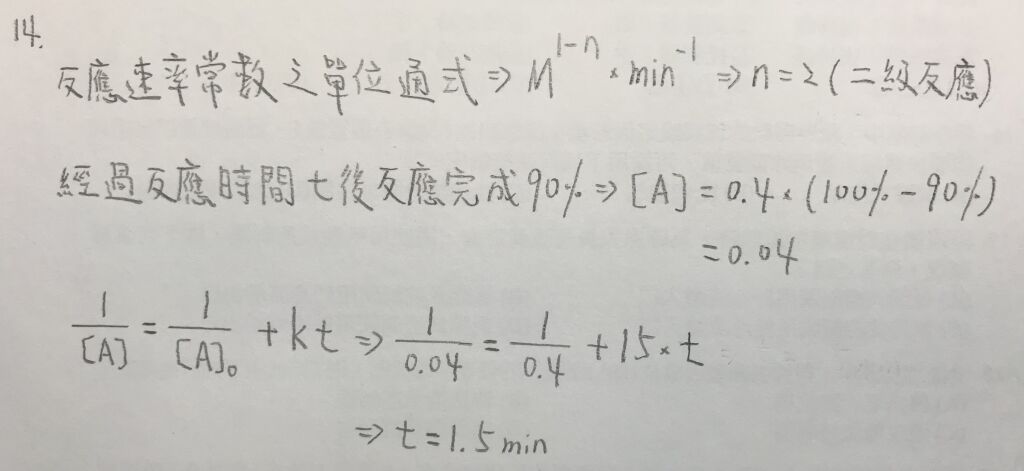 14.
反應速率常數之單位通式 ⇒ M^{1-n} × min^{-1} ⇒ n = 2 (二級反應)
經過反應時間 t 後反應完成 90% ⇒ [A] = 0.4 × (100% - 90%)
= 0.04
1/[A] = 1/[A]₀ + kt ⇒ 1/0.04 = 1/0.4 + 15 × t
⇒ t = 1.5 min